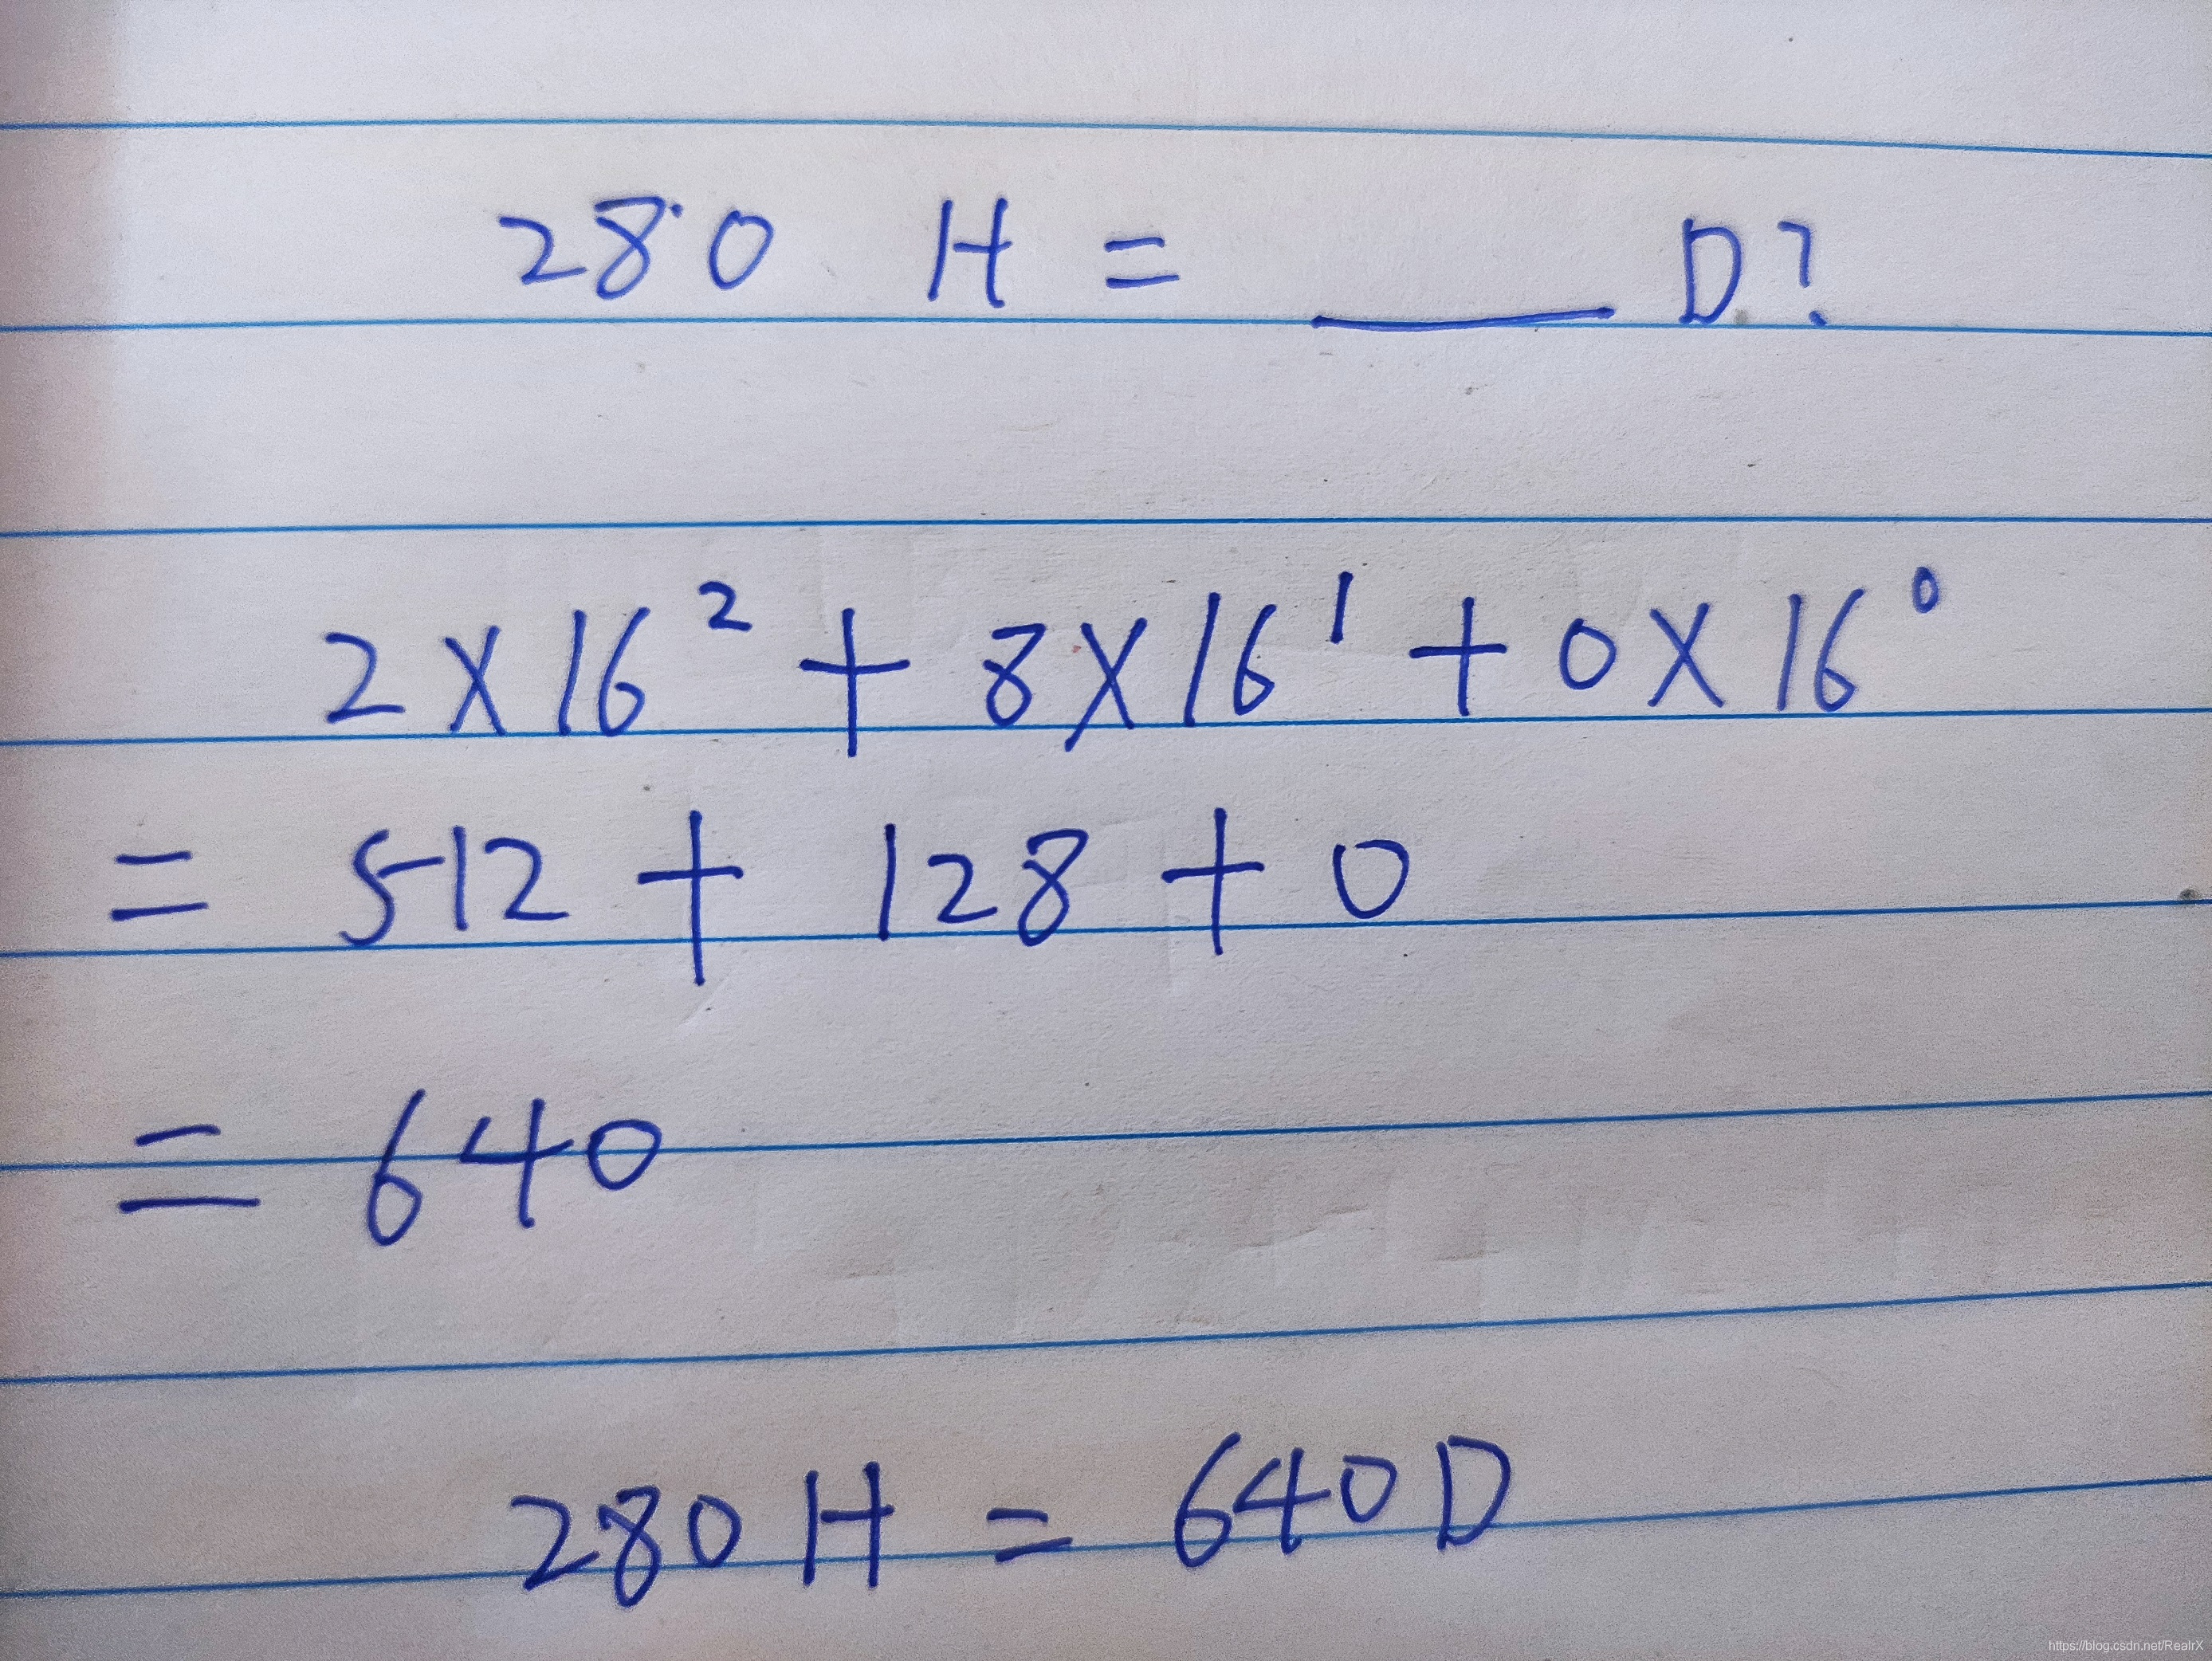 280 H = ____ D?
2 × 16² + 8 × 16¹ + 0 × 16⁰
= 512 + 128 + 0
= 640
280 H = 640 D
https://blog.csdn.net/RealrX